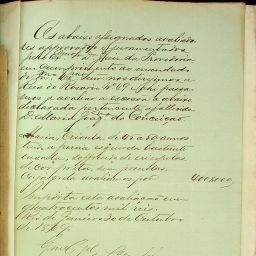 Os abaixo assignados avaliado
res approvados e Juramentados
pelo Exmo Sr. Dr. Juiz da Provedoria
em cumprimento ao mandado
do Juiz nos dirigimos a
Rua do Rosario Nº 69 e ahi passa
mos a avaliar a escrava abaixo
declarada pertencente a fallecida
D. Maria Joaqª da Conceição.
Maria Crioula de 45 a 50 annos
tem a perna esquerda bastante
inxada, soffrendo de erisipelas
de cor preta, sem prendas
avaliamos por 400$000
Importa esta avaliação em
quatrocentos mil reis.
Rio de Janeiro 30 de Outubro
de 1869.